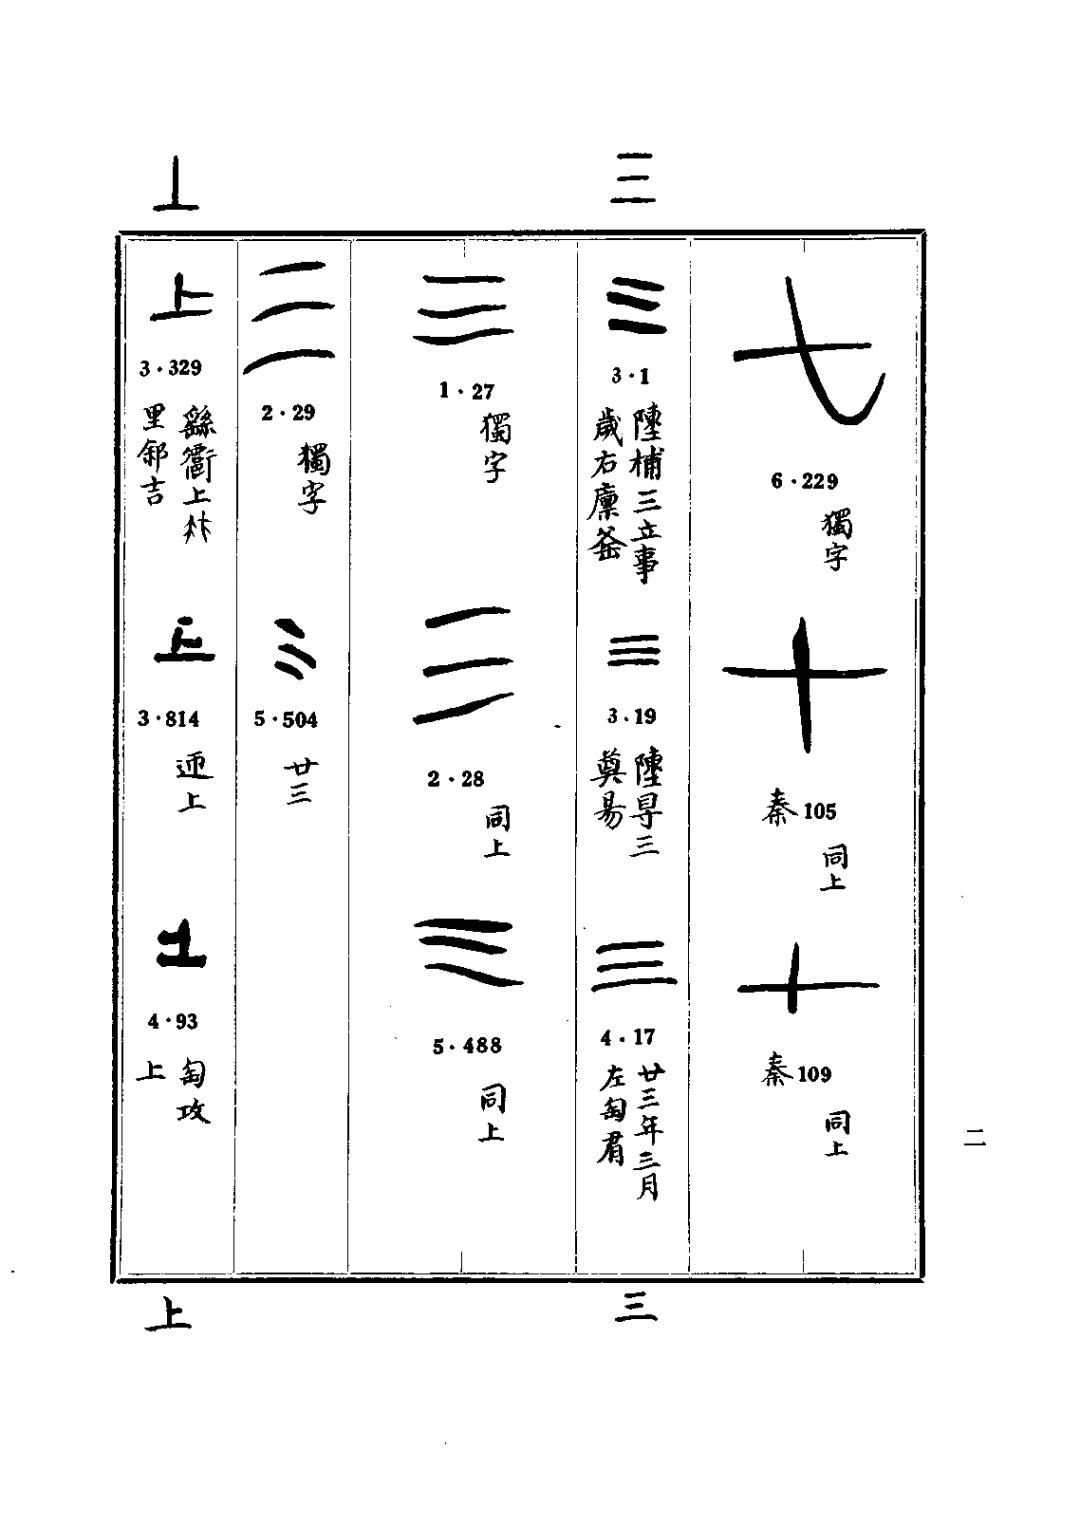 三
上
七
6·229
獨字
十
秦105
同上
十
秦109
同上
三
3·1
三立事
歲右廩釜
三
3·19
三
4·17
廿三年三月
左匋君
三
1·27
獨字
三
2·28
同上
三
5·488
同上
三
2·29
獨字
三
5·504
廿三
上
3·329
衢上
里吉
上
3·814
上
上
4·93
匋攻
上
三
上
二